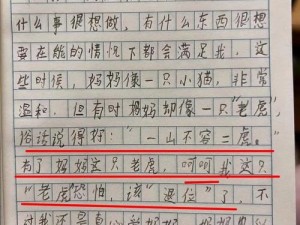 什么事很想做，有什么东西很想
要在能的情况下都会满足我，这
些时候，妈妈像一只小猫，非常
温和。但有时妈妈却像一只“老虎，
俗话说得好：“一山不容二虎。”
有了妈妈这只老虎，呵呵我这只
“老虎恐怕，该“退位”了，不
过我还是真心爱妈妈